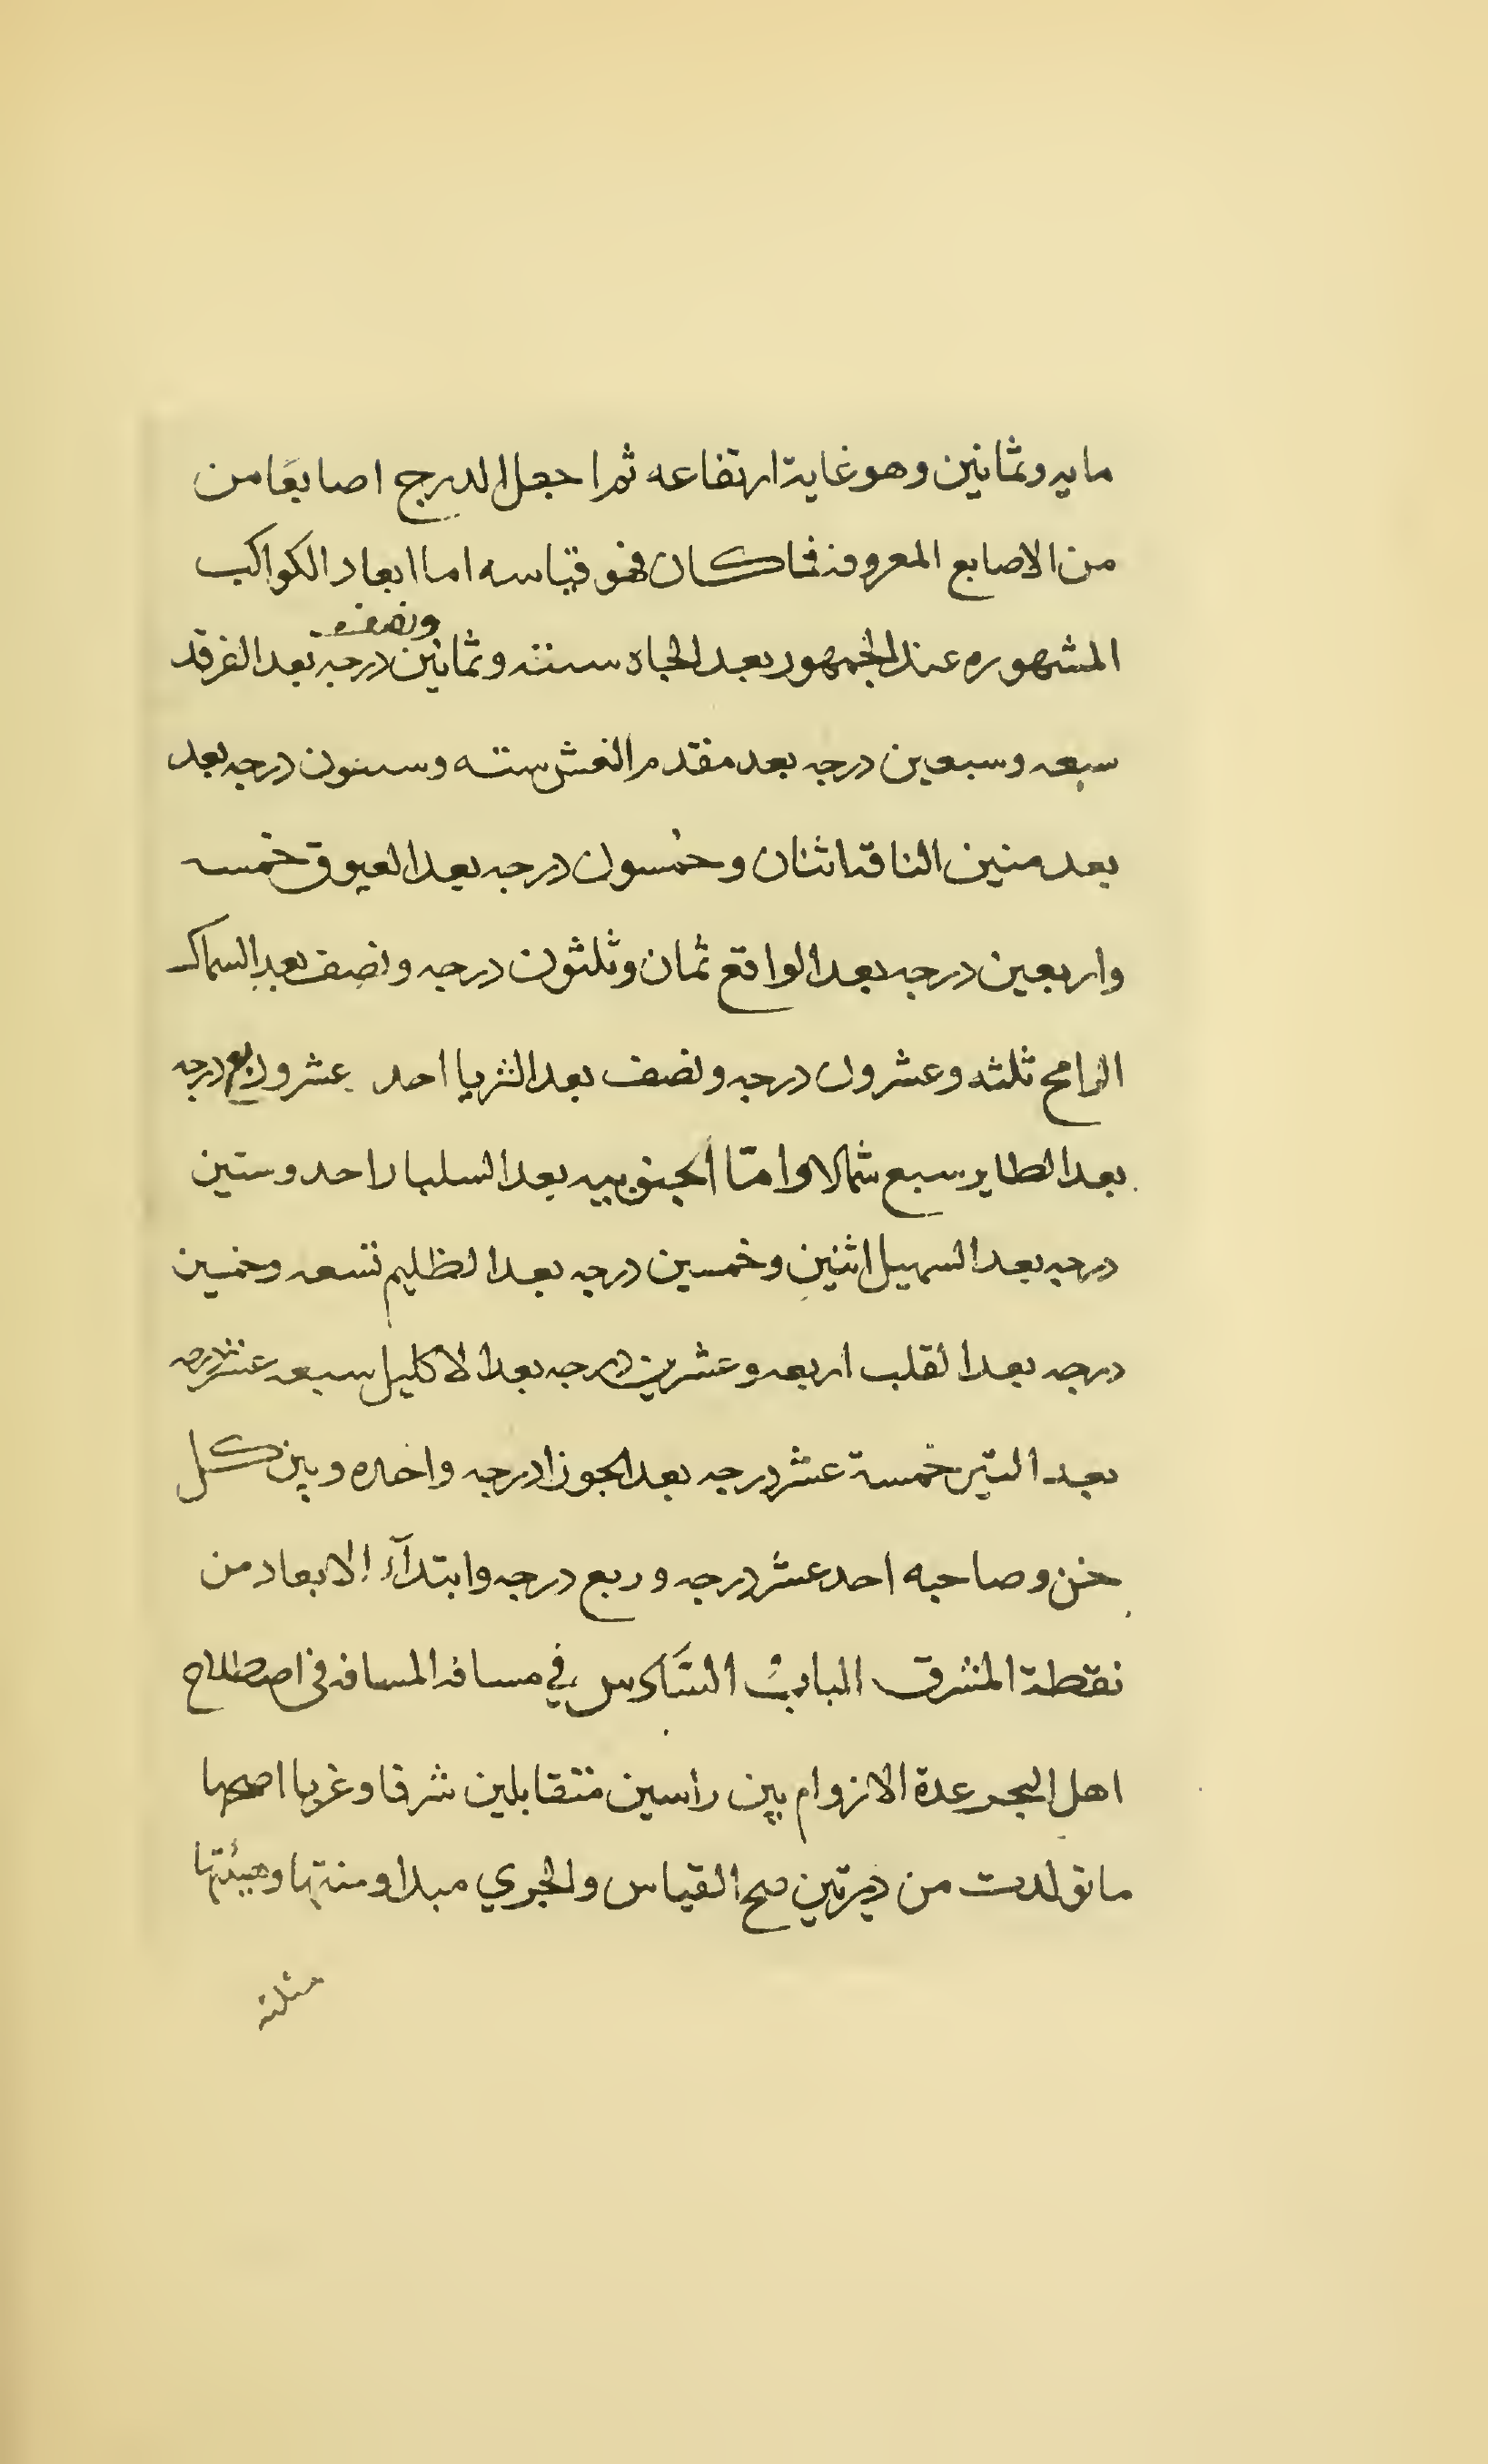 مايه وثمانين وهو غاية ارتفاعه ثم اجعل الدرج اصابعًا من
من الاصابع المعروفه فما كان فهو قياسه اما ابعاد الكواكب
ونصف
المشهوره عند الجمهور بعد الجاه سته وثمانين درجه بعد الفرقد
سبعه وسبعين درجه بعد مقدم النعش سته وستون درجه بعد
بعد منين الناقه اثنان وخمسون درجه بعد العيوق خمسه
واربعين درجه بعد الواقع ثمان وثلثون درجه ونصف بعد السماك
الرامح ثلثه وعشرون درجه ونصف بعد الثريا احد عشرون ربع درجه
بعد الطاير سبع شمالا وامّا الجنوبيه بعد السلبار احد وستين
درجه بعد السهيل اثنين وخمسين درجه بعد الظليم تسعه وخمسين
درجه بعد القلب اربعه وعشرين درجه بعد الاكليل سبعه عشر درجه
بعد التير خمسة عشر درجه بعد الجوزا درجه واحده وبين كل
خن وصاحبه احد عشر درجه وربع درجه وابتدآء الابعاد من
نقطة المشرق الباب السَّادس في مسافه المسافه في اصطلاح
اهل البحر عدة الازوام بين راسين متقابلين شرقا وغربا اصحها
ما تولدت من ديرتين صح القياس والجري مبدا ومنتها وهيئتها
مثلثه